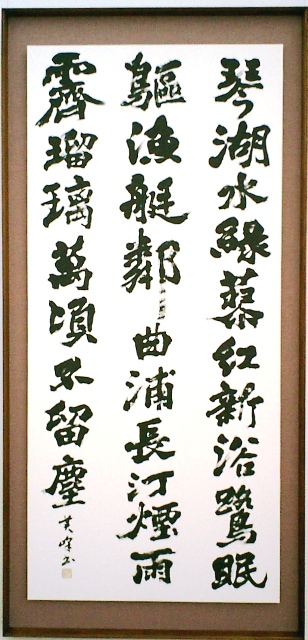 琴湖水緑蓼紅新浴鷺眠
驅漁艇鄰曲浦長汀煙雨
霽瑠璃萬頃不留塵